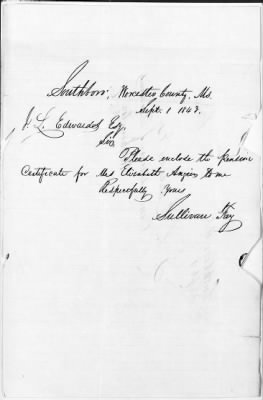 Southboro, Worcester County, Ms.
Sept. 1 1843.
J. L. Edwards Esq.
Sir,
Please enclose the Pension
Certificate for Mrs Elizabeth Angier to me
Respecfully Yours
Sullivan Fay